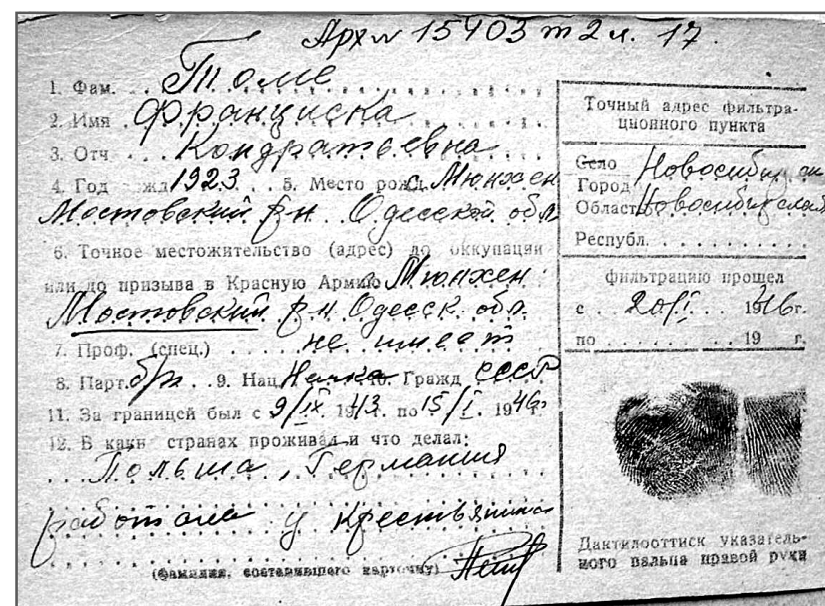 Арх № 15403 т 2 л. 17.
1. Фам. Томе
2. Имя Франциска
3. Отч. Кондратьевна
4. Год рожд. 1923 5. Место рожд. с. Мюнхен
Мостовский р-н. Одесской обл
6. Точное местожительство (адрес) до оккупации
или до призыва в Красную Армию Мюнхен
Мостовский р-н Одесск. обл.
7. Проф. (спец.) не имеет
8. Парт. б/п 9. Нац. Немка 10. Гражд СССР
11. За границей был с 9/IX. 1943. по 15/I. 1946г.
12. В каких странах проживал и что делал:
Польша, Германия
работала у крестьянина
(фамилия, составившего карточку)
Точный адрес фильтра-
ционного пункта
Село
Город Новосибирск
Область Новосибирская
Республ.
фильтрацию прошел
с 20/I. 1946г.
по 19 г.
Дактилооттиск указатель-
ного пальца правой руки